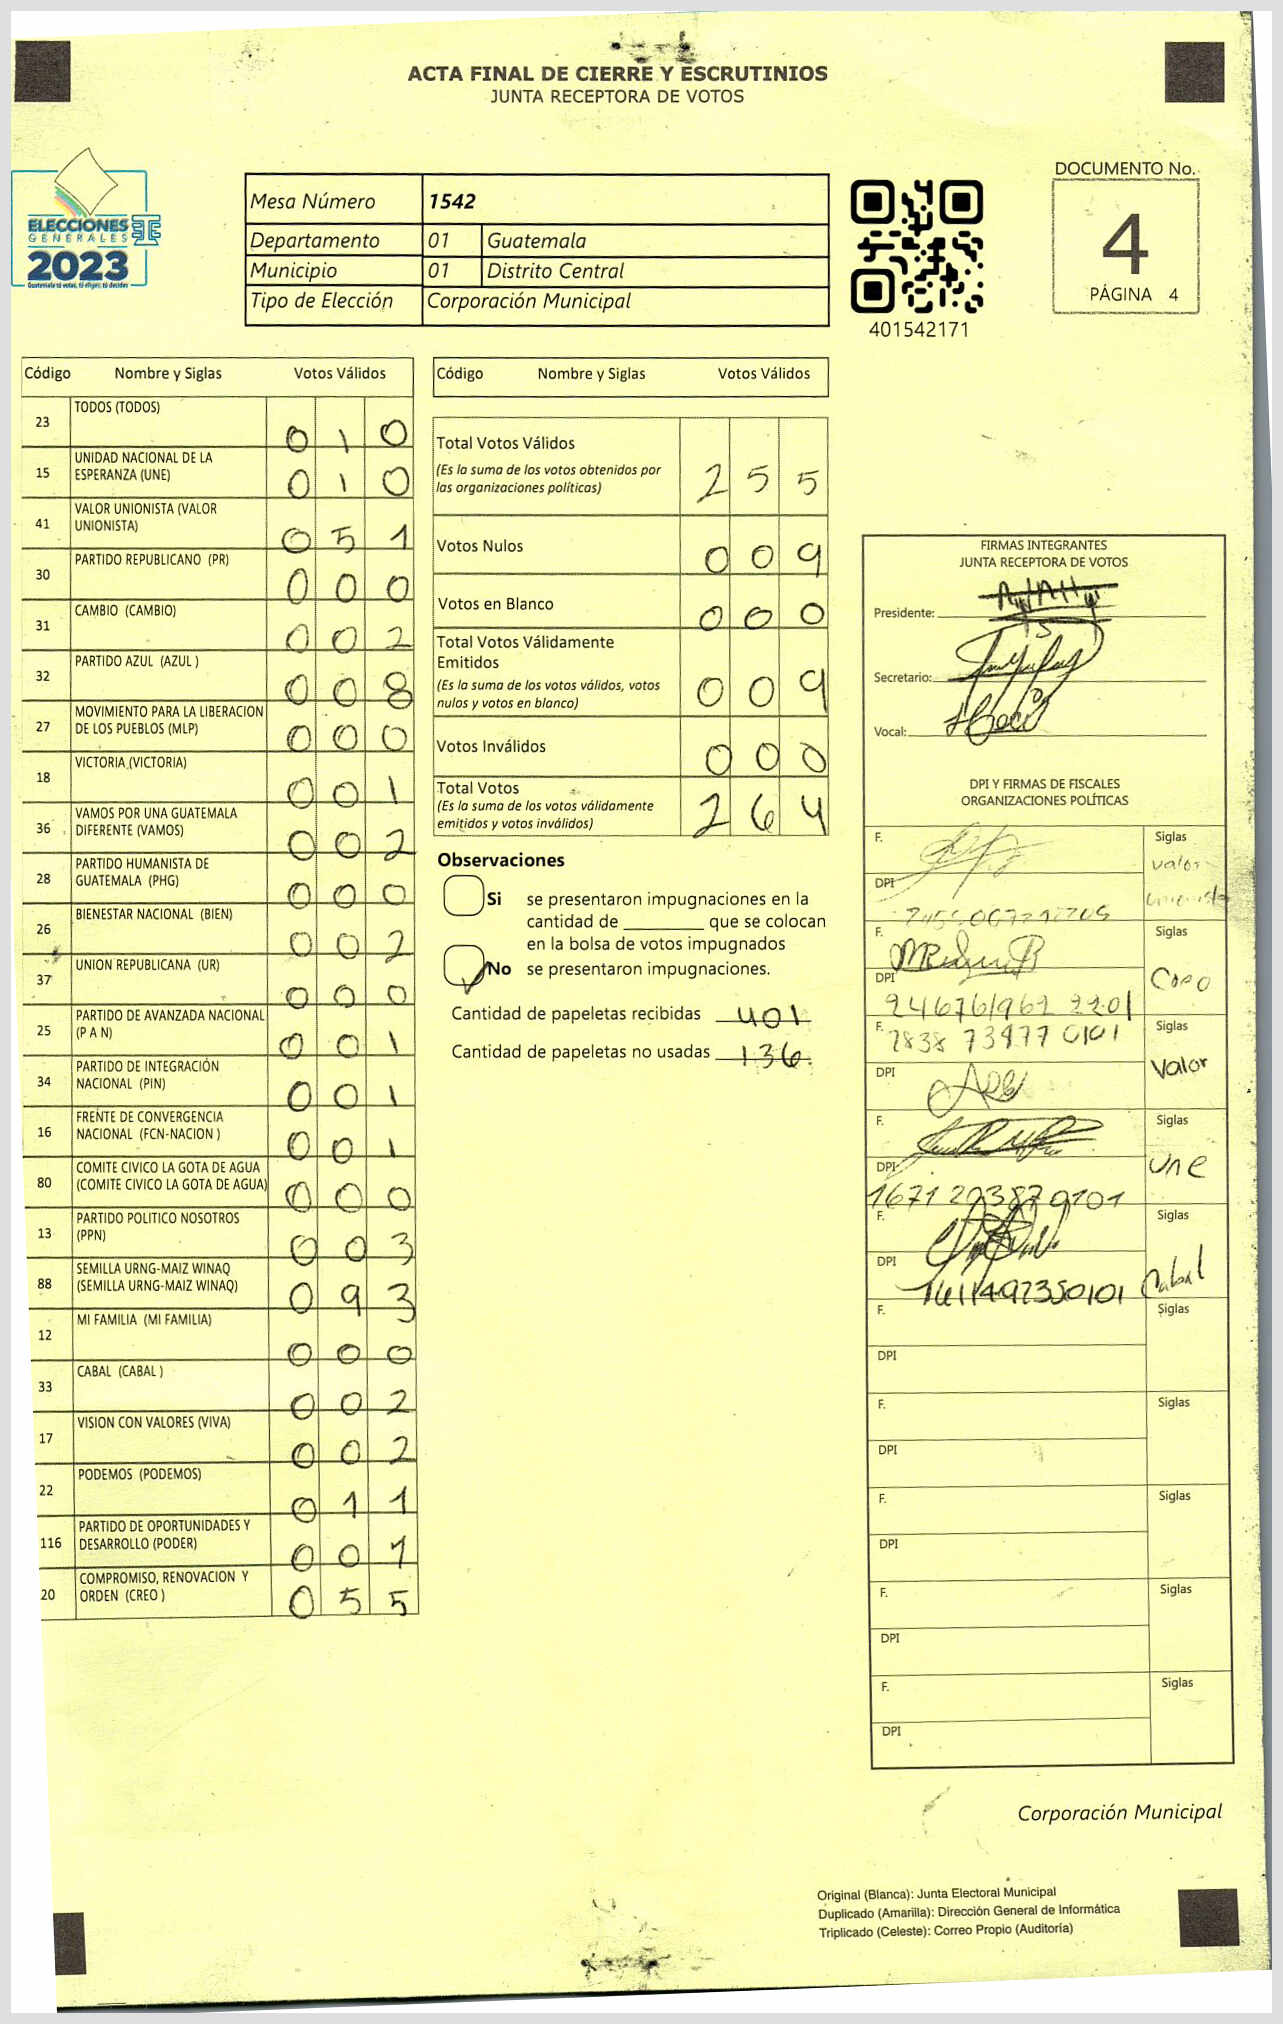 ACTA FINAL DE CIERRE Y ESCRUTINIOS
JUNTA RECEPTORA DE VOTOS
ELECCIONES
GENERALES
2023
Guatemala tú votas, tú eliges, tú decides
Mesa Número 1542
Departamento 01 Guatemala
Municipio 01 Distrito Central
Tipo de Elección Corporación Municipal
401542171
DOCUMENTO No.
4
PÁGINA 4
Código Nombre y Siglas Votos Válidos
23 TODOS (TODOS) 0 1 0
15 UNIDAD NACIONAL DE LA ESPERANZA (UNE) 0 1 0
41 VALOR UNIONISTA (VALOR UNIONISTA) 0 5 1
30 PARTIDO REPUBLICANO (PR) 0 0 0
31 CAMBIO (CAMBIO) 0 0 2
32 PARTIDO AZUL (AZUL ) 0 0 8
27 MOVIMIENTO PARA LA LIBERACION DE LOS PUEBLOS (MLP) 0 0 0
18 VICTORIA (VICTORIA) 0 0 1
36 VAMOS POR UNA GUATEMALA DIFERENTE (VAMOS) 0 0 2
28 PARTIDO HUMANISTA DE GUATEMALA (PHG) 0 0 0
26 BIENESTAR NACIONAL (BIEN) 0 0 2
37 UNION REPUBLICANA (UR) 0 0 0
25 PARTIDO DE AVANZADA NACIONAL (P A N) 0 0 1
34 PARTIDO DE INTEGRACIÓN NACIONAL (PIN) 0 0 1
16 FRENTE DE CONVERGENCIA NACIONAL (FCN-NACION ) 0 0 1
80 COMITE CIVICO LA GOTA DE AGUA (COMITE CIVICO LA GOTA DE AGUA) 0 0 0
13 PARTIDO POLITICO NOSOTROS (PPN) 0 0 3
88 SEMILLA URNG-MAIZ WINAQ (SEMILLA URNG-MAIZ WINAQ) 0 9 3
12 MI FAMILIA (MI FAMILIA) 0 0 0
33 CABAL (CABAL ) 0 0 2
17 VISION CON VALORES (VIVA) 0 0 2
22 PODEMOS (PODEMOS) 0 1 1
116 PARTIDO DE OPORTUNIDADES Y DESARROLLO (PODER) 0 0 1
20 COMPROMISO, RENOVACION Y ORDEN (CREO ) 0 5 5
Código Nombre y Siglas Votos Válidos
Total Votos Válidos 2 5 5
(Es la suma de los votos obtenidos por
las organizaciones políticas)
Votos Nulos 0 0 9
Votos en Blanco 0 0 0
Total Votos Válidamente
Emitidos 0 0 9
(Es la suma de los votos válidos, votos
nulos y votos en blanco)
Votos Inválidos 0 0 0
Total Votos 2 6 4
(Es la suma de los votos válidamente
emitidos y votos inválidos)
Observaciones
Si se presentaron impugnaciones en la
cantidad de ________ que se colocan
en la bolsa de votos impugnados
No se presentaron impugnaciones.
Cantidad de papeletas recibidas 401
Cantidad de papeletas no usadas 136
FIRMAS INTEGRANTES
JUNTA RECEPTORA DE VOTOS
Presidente:
Secretario:
Vocal:
DPI Y FIRMAS DE FISCALES
ORGANIZACIONES POLÍTICAS
F. Siglas
valor
DPI
unionista
F. Siglas
DPI
F. Siglas
7838 73977 0101
DPI Valor
F. Siglas
DPI une
1671 20387 0101
F. Siglas
DPI Cabal
1611497350101
F. Siglas
DPI
F. Siglas
DPI
F. Siglas
DPI
F. Siglas
DPI
F. Siglas
DPI
Corporación Municipal
Original (Blanca): Junta Electoral Municipal
Duplicado (Amarilla): Dirección General de Informática
Triplicado (Celeste): Correo Propio (Auditoría)